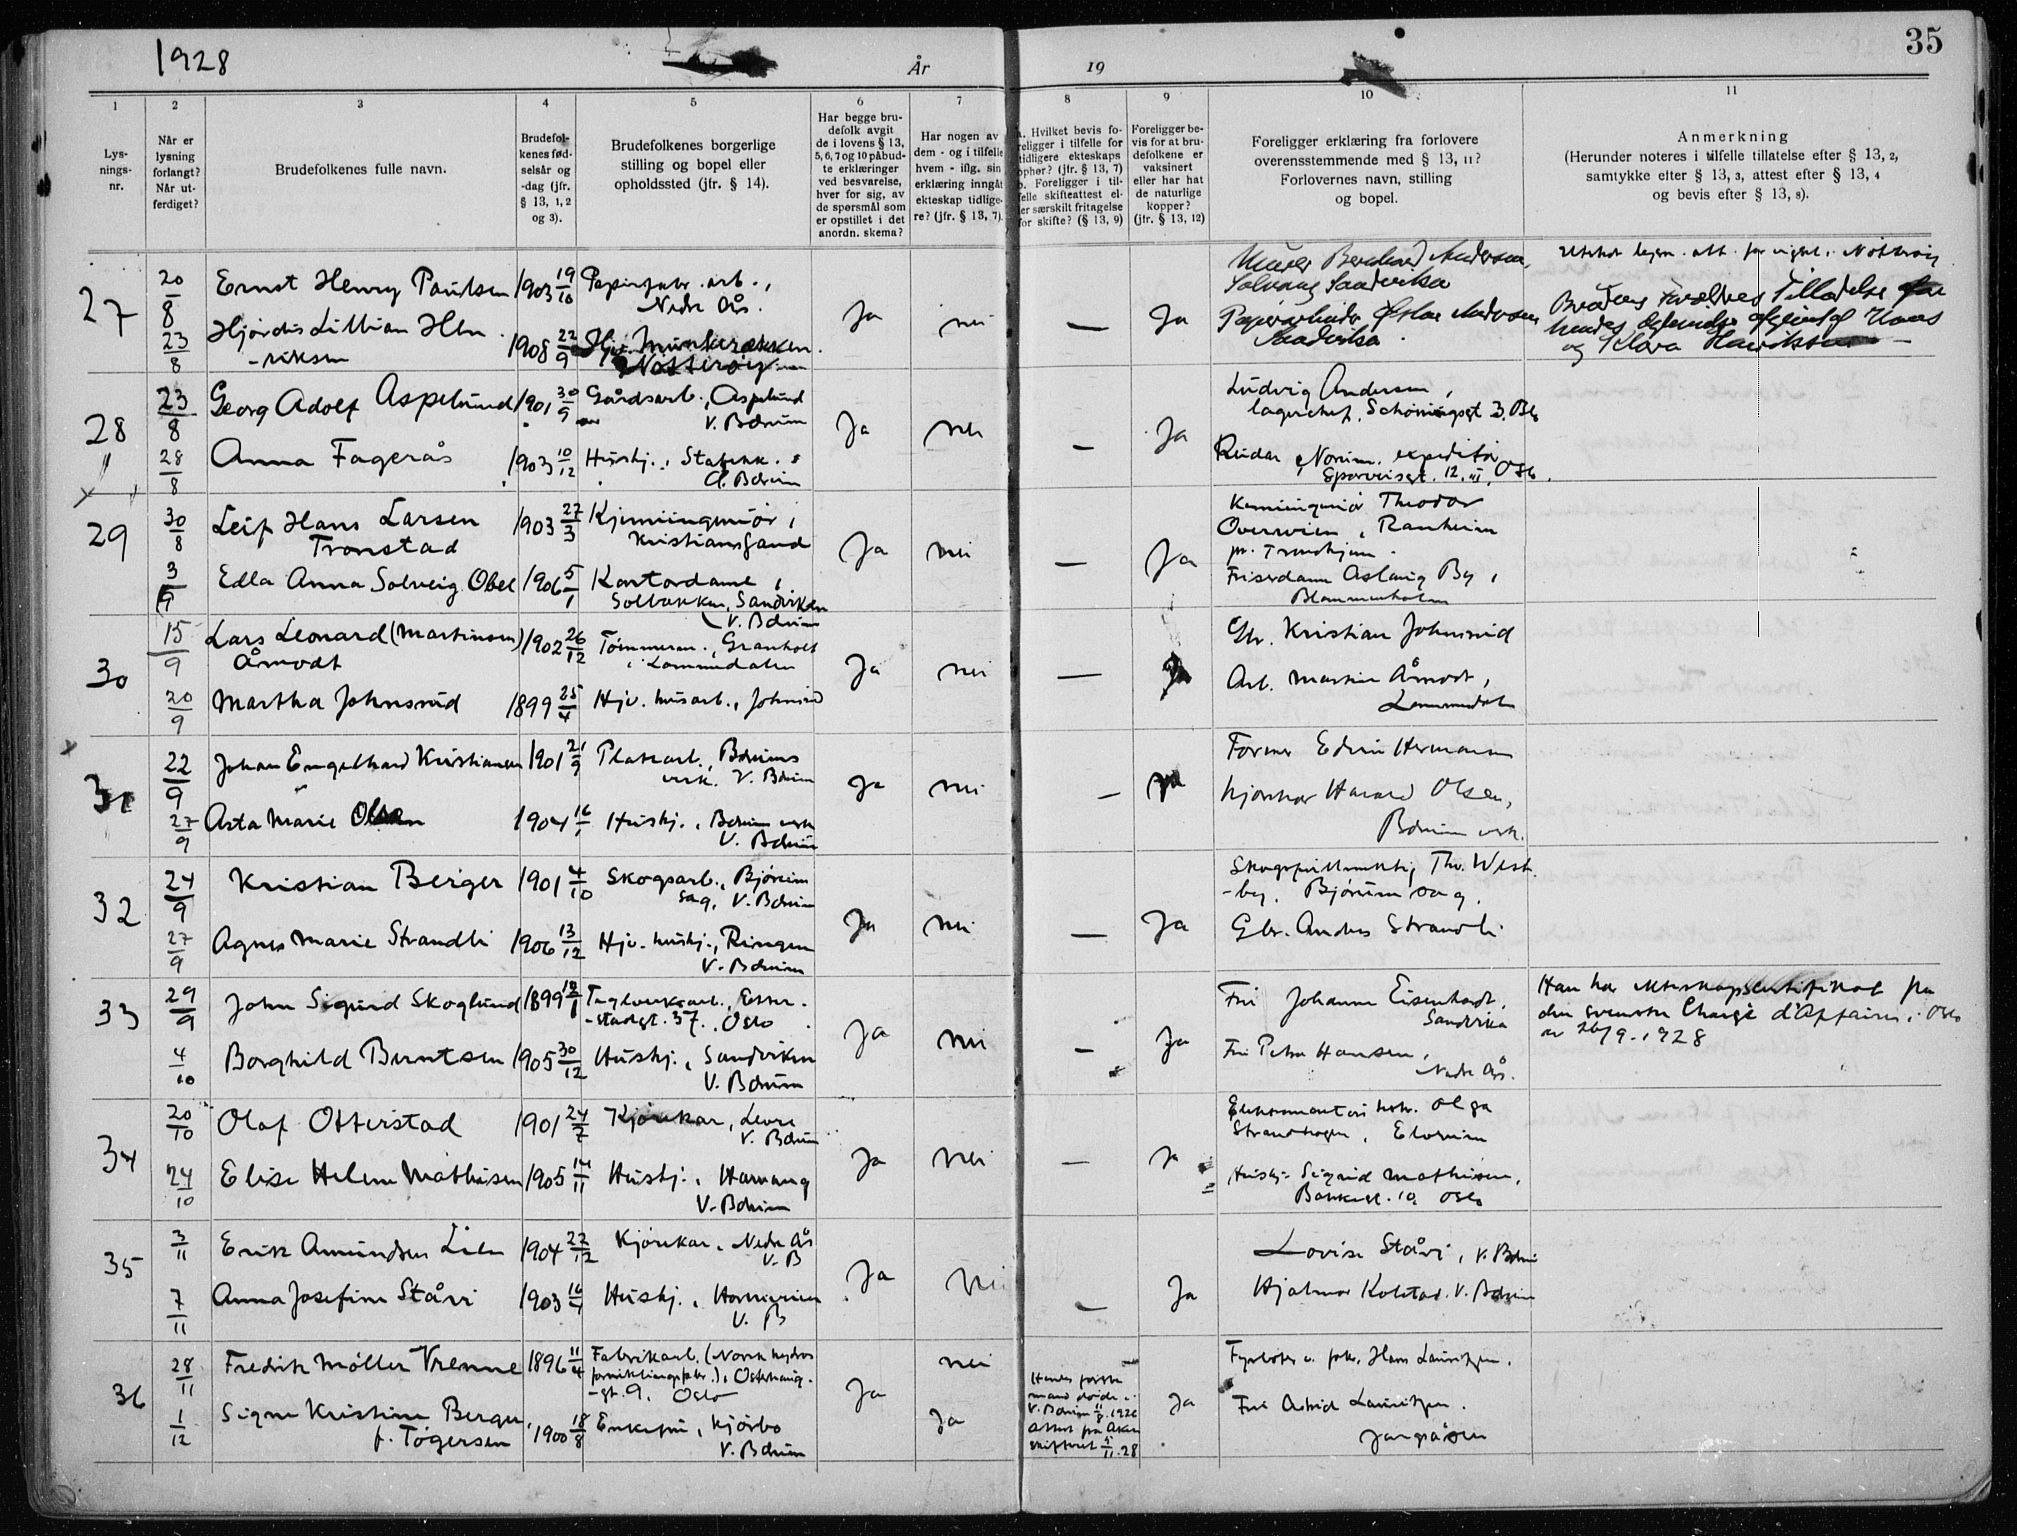 1928
År
19
35
1
2
3
4
5
6
7
8
9
10
11
Lys-
nings-
nr.
Når er
lysning
forlangt?
Når ut-
ferdiget?
Brudefolkenes fulle navn.
Brudefol-
kenes fød-
selsår og
-dag (jfr.
§ 13, 1, 2
og 3).
Brudefolkenes borgerlige
stilling og bopel eller
opholdssted (jfr. § 14).
Har begge bru-
defolk avgit
de i lovens § 13,
5, 6, 7 og 10 påbud-
te erklæringer
ved besvarelse,
hver for sig, av
de spørsmål som
er opstillet i det
anordn. skema?
Har nogen av
dem - og i tilfelle
hvem - iflg. sin
erklæring inngåt
ekteskap tidlige-
re? (jfr. § 13, 7).
a. Hvilket bevis fo-
religger i tilfelle for
tidligere ekteskaps
ophør? (jfr. § 13, 7)
b. Foreligger i til-
felle skifteattest el-
ler særskilt fritagelse
for skifte? (§ 13, 9)
Foreligger be-
vis for at bru-
defolkene er
vaksinert
eller har hat
de naturlige
kopper?
(jfr. § 13, 12)
Foreligger erklæring fra forlovere
overensstemmende med § 13, 11?
Forlovernes navn, stilling
og bopel.
Anmerkning
(Herunder noteres i tilfelle tillatelse efter § 13, 2,
samtykke efter § 13, 3, attest efter § 13, 4
og bevis efter § 13, 8).
27
20/8
Ernst Henry Paulsen
1903 19/10
Papirfabr. arb.,
Nedre Ås.
23/8
Hjördis Lillian Hen-
-riksen
1908 22/9
Nötteröy
Ja
nei
—
Ja
Murer Bernhard Andersen,
Solvang Sandvika
Papirarbeider Oskar Andersen
Sandvika.
og Klara Henriksen
28
23/8
Georg Adolf Aspelund
1901 30/9
Gårdsarb., Aspelund
V. Bærum
28/8
Anna Fagerås
1903 10/12
Hushj., Stabekk.
Ø. Bærum
Ja
nei
—
Ja
Ludvig Andersen,
lagerchef, Schøningsgt 3. Oslo
Reidar Norum, expeditør
Sporveisgt. 12, III, Oslo.
29
30/8
Leif Hans Larsen
Tronstad
1903 27/3
Kjemiingeniör,
Kristiansand
3/9
Edla Anna Solveig Obel
1906 5/1
Kontordame,
Solbakken, Sandviken
V. Bærum
Ja
nei
—
Ja
Kemiingeniør Theodor
Overwien, Ranheim
pr. Trondhjem.
Friserdame Aslaug By,
Blommenholm
30
15/9
Lars Leonard (Martinsen)
Åmodt
1902 26/12
Tømmerm., Granholt
i Lommedalen
20/9
Martha Johnsrud
1899 25/4
Hjv. husarb., Johnsrud
Ja
nei
—
Ja
Gbr. Kristian Johnsrud
Arb. Martin Åmodt,
Lommedalen
31
22/9
Johan Engelhard Kristiansen
1901 21/9
Platearb., Bærums
verk. V. Bærum
27/9
Asta Marie Olsen
1904 16/1
Hushj., Bærums verk
V. Bærum
Ja
nei
—
Ja
Former Edvin Hermansen
Kjørekar Harald Olsen,
Bærums verk.
32
24/9
Kristian Berger
1901 4/10
Skogsarb., Bjørum
sag, V. Bærum
27/9
Agnes Marie Strandli
1906 13/12
Hjv. hushj., Ringen
V. Bærum
Ja
nei
—
Ja
Skogsfullmektig Thv. West-
-by, Bjørum sag.
Gbr. Anders Strandli
33
29/9
John Sigurd Skoglund
1899 18/1
Teglverksarb., Etter-
-stadgt. 37, Oslo
4/10
Borghild Berntsen
1905 30/12
Hushj., Sandviken
V. Bærum
Ja
nei
—
Ja
Fru Johanne Eisenhardt,
Sandvika
Fru Petra Hansen,
Nedre Ås.
Han har ekteskapscertifikat fra
den svenske Chargé d'Affaires i Oslo
av 26/9.1928
34
20/10
Olaf Otterstad
1901 24/7
Kjørekar, Levre
V. Bærum
24/10
Elise Helene Mathisen
1905 14/11
Hushj., Hamang
V. Bærum
Ja
nei
—
Ja
Elektromontør Olga
Strandhagen, Elverum
Hushj. Sigrid Mathisen,
Bakkegt. 10, Oslo
35
3/11
Erik Amundsen Lien
1904 22/12
Kjørekar, Nedre Ås
V. B
7/11
Anna Josefine Ståvi
1903 16/4
Hushj.,
V. B
Ja
Nei
—
Ja
Lovise Ståvi, V. Bærum
Hjalmar Kolstad. V. Bærum
36
28/11
Fredrik Møller Vrenne
1896 11/4
Fabrikarb. (Norsk hydros
forniklingsfabr.), Østerhaug-
-gt. 9, Oslo
1/12
Signe Kristine Berger,
f. Tøgersen
1900 18/8
Enkefru, Kjørbo
V. Bærum
Ja
nei
Ja
—
Hendes første
mand døde i
V. Bærum 11/8.1926
Attest fra Aker
skifteret 5/11.28
Ja
Fyrbøter v. fabr. Hans Lauritzen.
Fru Astrid Lauritzen.
Jongsåsen